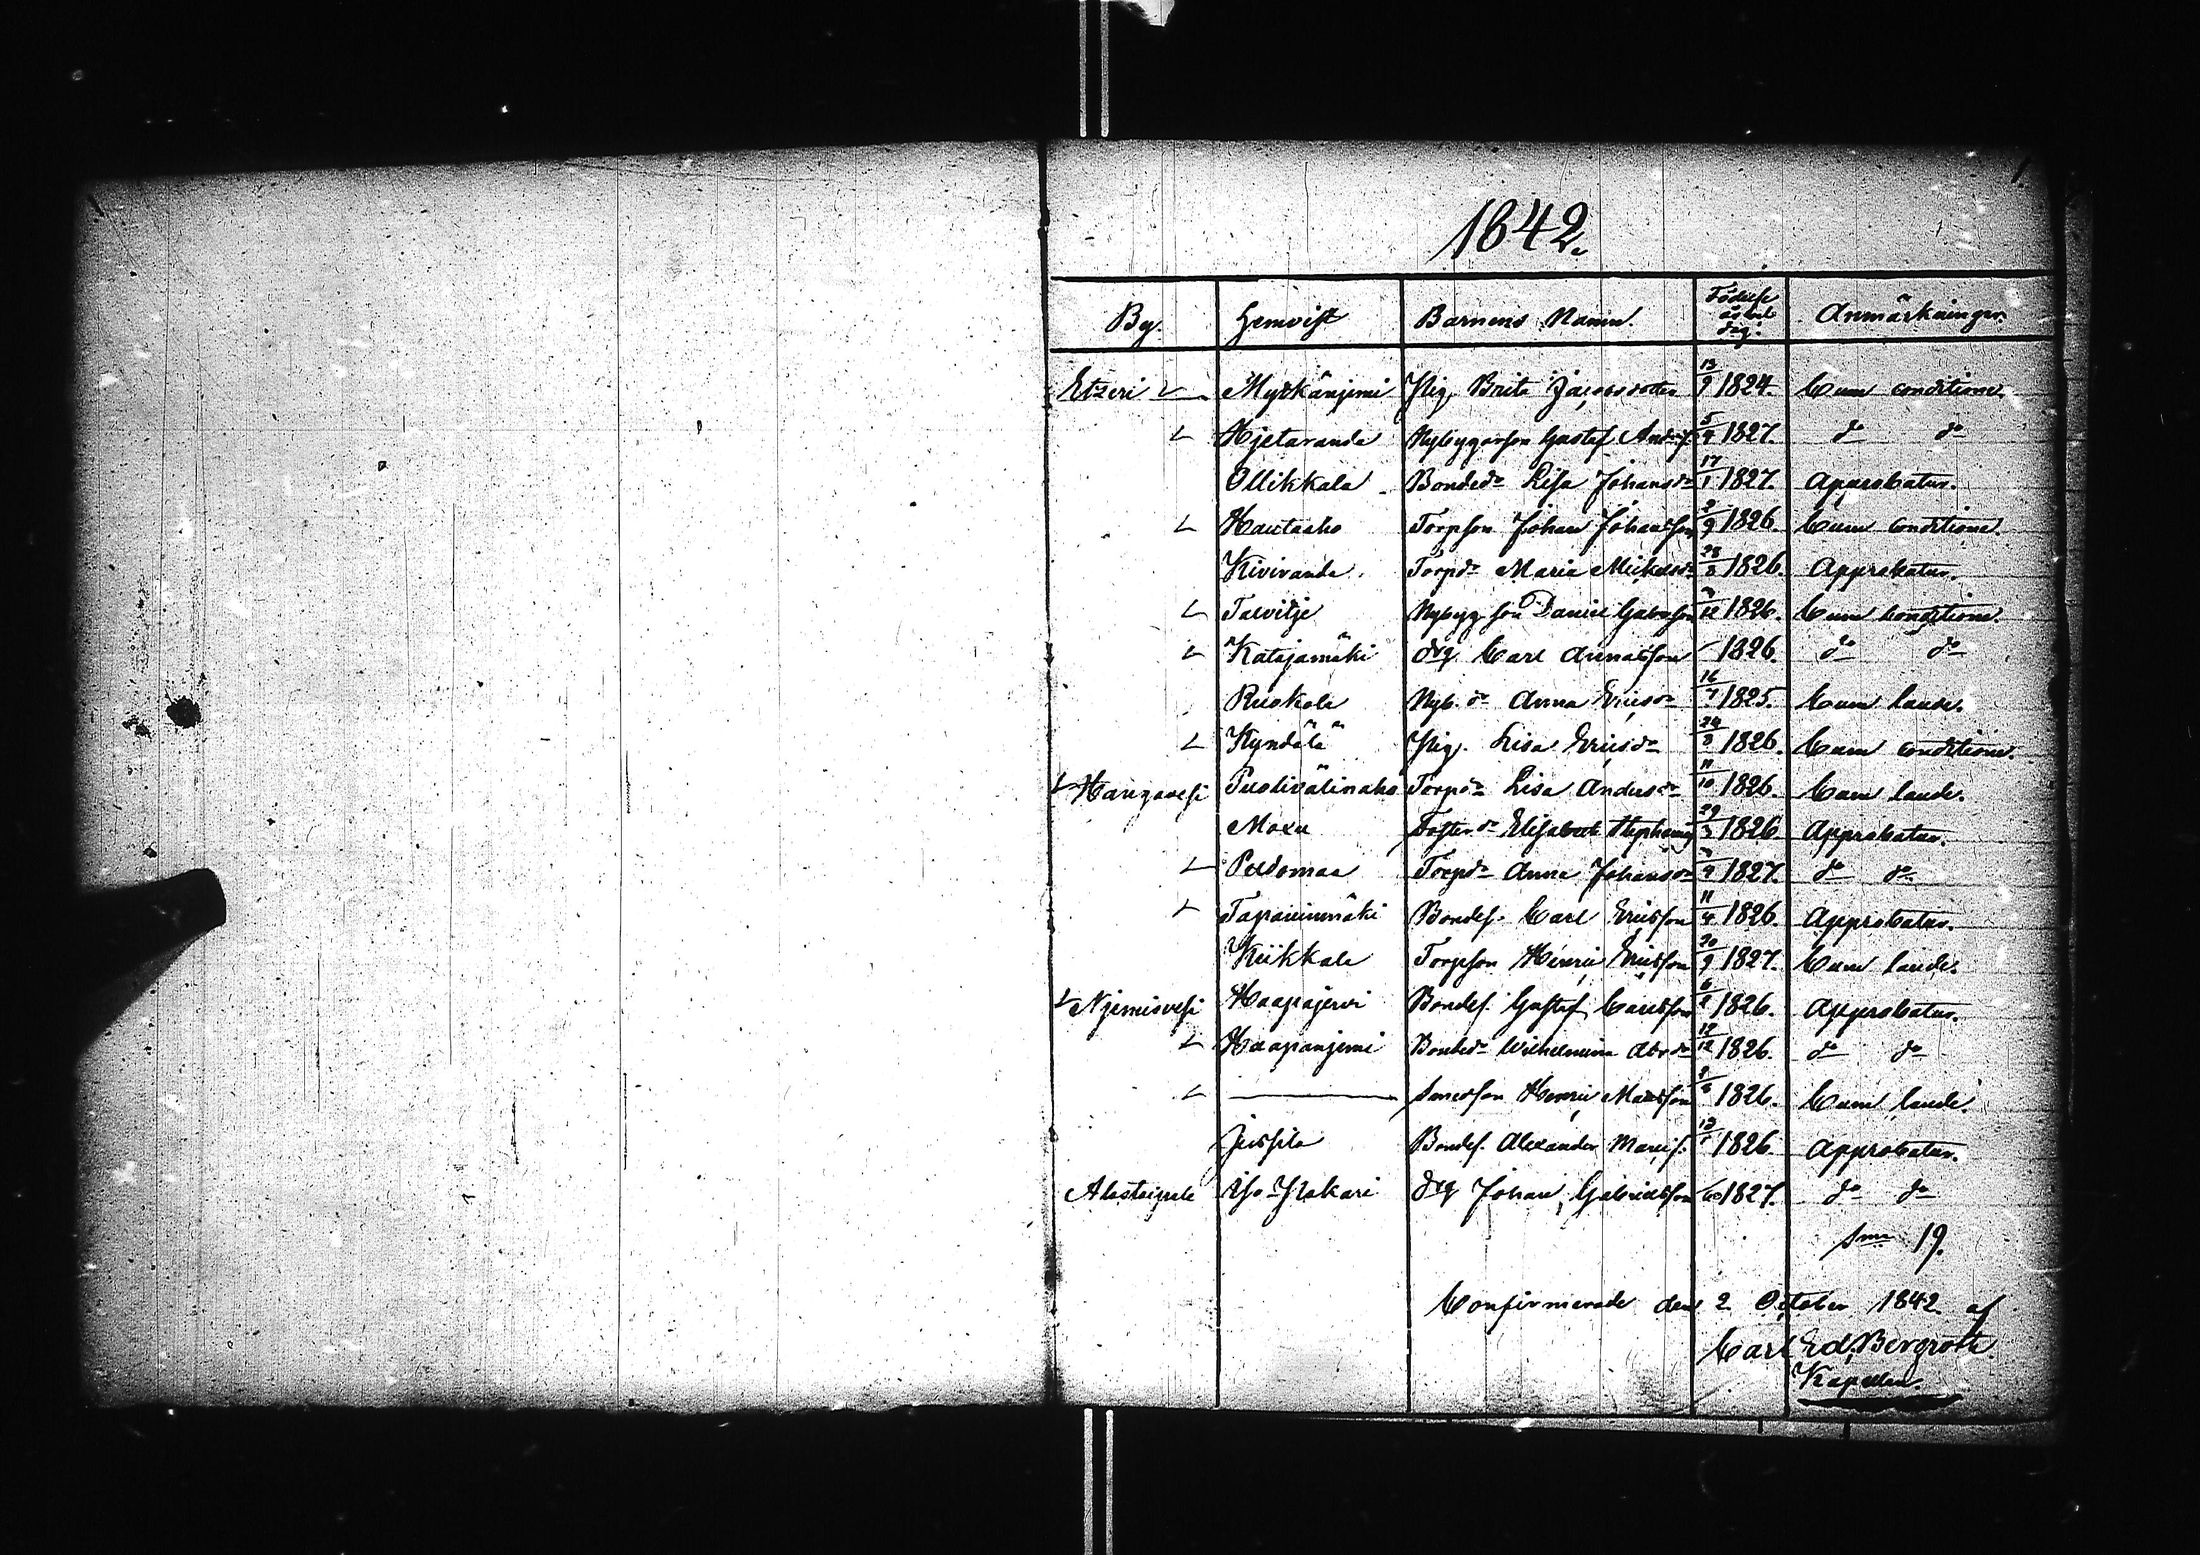 1842.
By. Hemvist Barnens Namn. Födelse år och dag. Anmärkningar.
Etzeri Myrkänjemi Pig. Brita Jacobsdotter 13/9 1824. Cum conditione.
Hjetaranda Nybyggarson Gustaf Andersf. 5/4 1827. do do
Ollikkala Bonded:r Lisa Johansd:r 17/1 1827. Approbatur.
Hautaaho Torpson Johan Johansson /9 1826. Cum conditione.
Kiviranda. Torpd:r Maria Mickelsd:r 28/8 1826. Approbatur.
Talvitje Nybyg. son Daniel Gabrson /12 1826. Cum conditione.
Katajamäki drg Carl Annasson 1826. do do
Ruokola Nyb. d:r Anna Ericsd:r 16/7 1825. Cum laude.
Kyndälä Pig. Lisa Ericsd:r 24/3 1826. Cum conditione.
Hangavesi Puolivälinaho Torpd:r Lisa Andersd:r 11/10 1826. Cum laude.
Moxu Fosterd:r Elisabet Stephansd. 29/3 1826 Approbatur.
Peldomaa Torpd:r Anna Johansd:r 1827. do do
Tapaninmäki Bondes. Carl Ericsson 11/4 1826. Approbatur.
Kiikkala Torpson Henric Ericsson 20/9 1827. Cum laude.
Njemisvesi Haapajervi Bondes. Gustaf Carlsson 6/8 1826. Approbatur.
Haapanjemi Bonded:r Wilhelmina Abrd:r 12/12 1826. do do
Smedson Henric Matsson 1826. Cum laude.
Jussila Bondes. Alexander 13/1 1826 Approbatur.
Alastaipale Iso-Pakari drg Johan Gabrielsson 1827. do do
Sma 19.
Confirmerade den 2 October 1842 af
Carl Ed. Bergroth.
Kapellan.